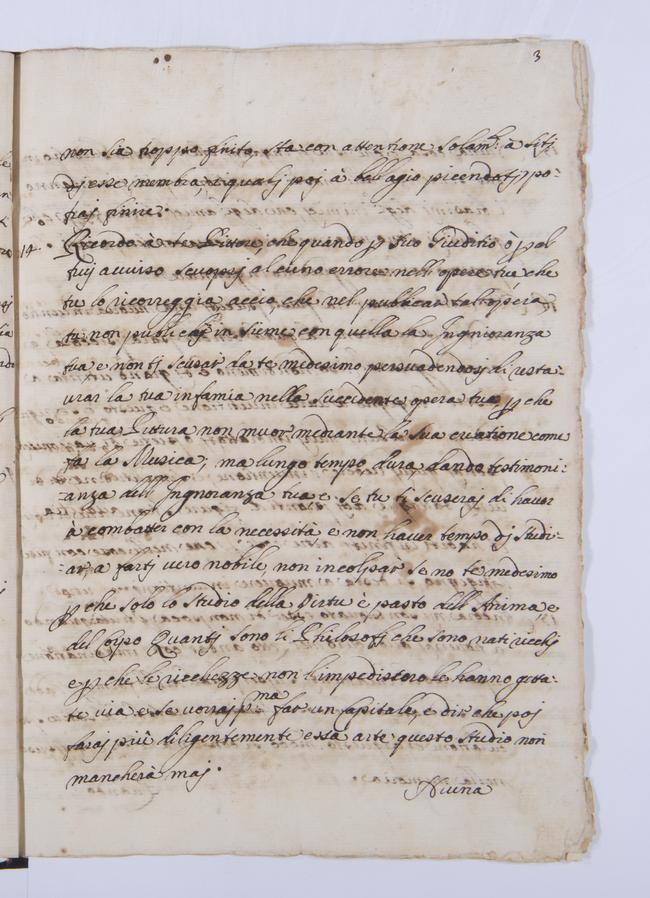 3
non sia troppo finito, sta con attentione solam.te à siti
di esse membra, i qualj poj à bell'agio piacendotj po-
traj finire.
14. Ricordo à te Pittore, che quando p tuo Giuditio ò p al
trui avviso scuoprj alcuno errore nell'opere tue, che
tu lo ricorreggia acciò, che nel publicar tal'opera,
tu non publicaj in sieme con quella la Ingnioranza
tua e non tj scusar da te medesimo persuadendosj di resta-
urar la tua infamia nella succedente opera tua p che
la tua Pitura non muor mediante la sua creatione come
fa la Musica, ma lungo tempo dura, dando testimoni-
anza dell'Ingnoranza tua e se tu ti scuseraj di haver
à combatter con la necessità e non haver tempo dj studi-
ar, a fartj vero nobile, non incolpar se no te medesimo
p che solo lo studio della Virtu è pasto dell'Anima, e
del corpo Quantj sono li Philosofi che sono nati ricchj
e p che le ricchezze non l'impedissero le hanno gita-
te via e se vorraj p.ma far un capitale, e dir che poj
faraj più diligentemente essa arte questo studio non
mancherà maj.
Niuna